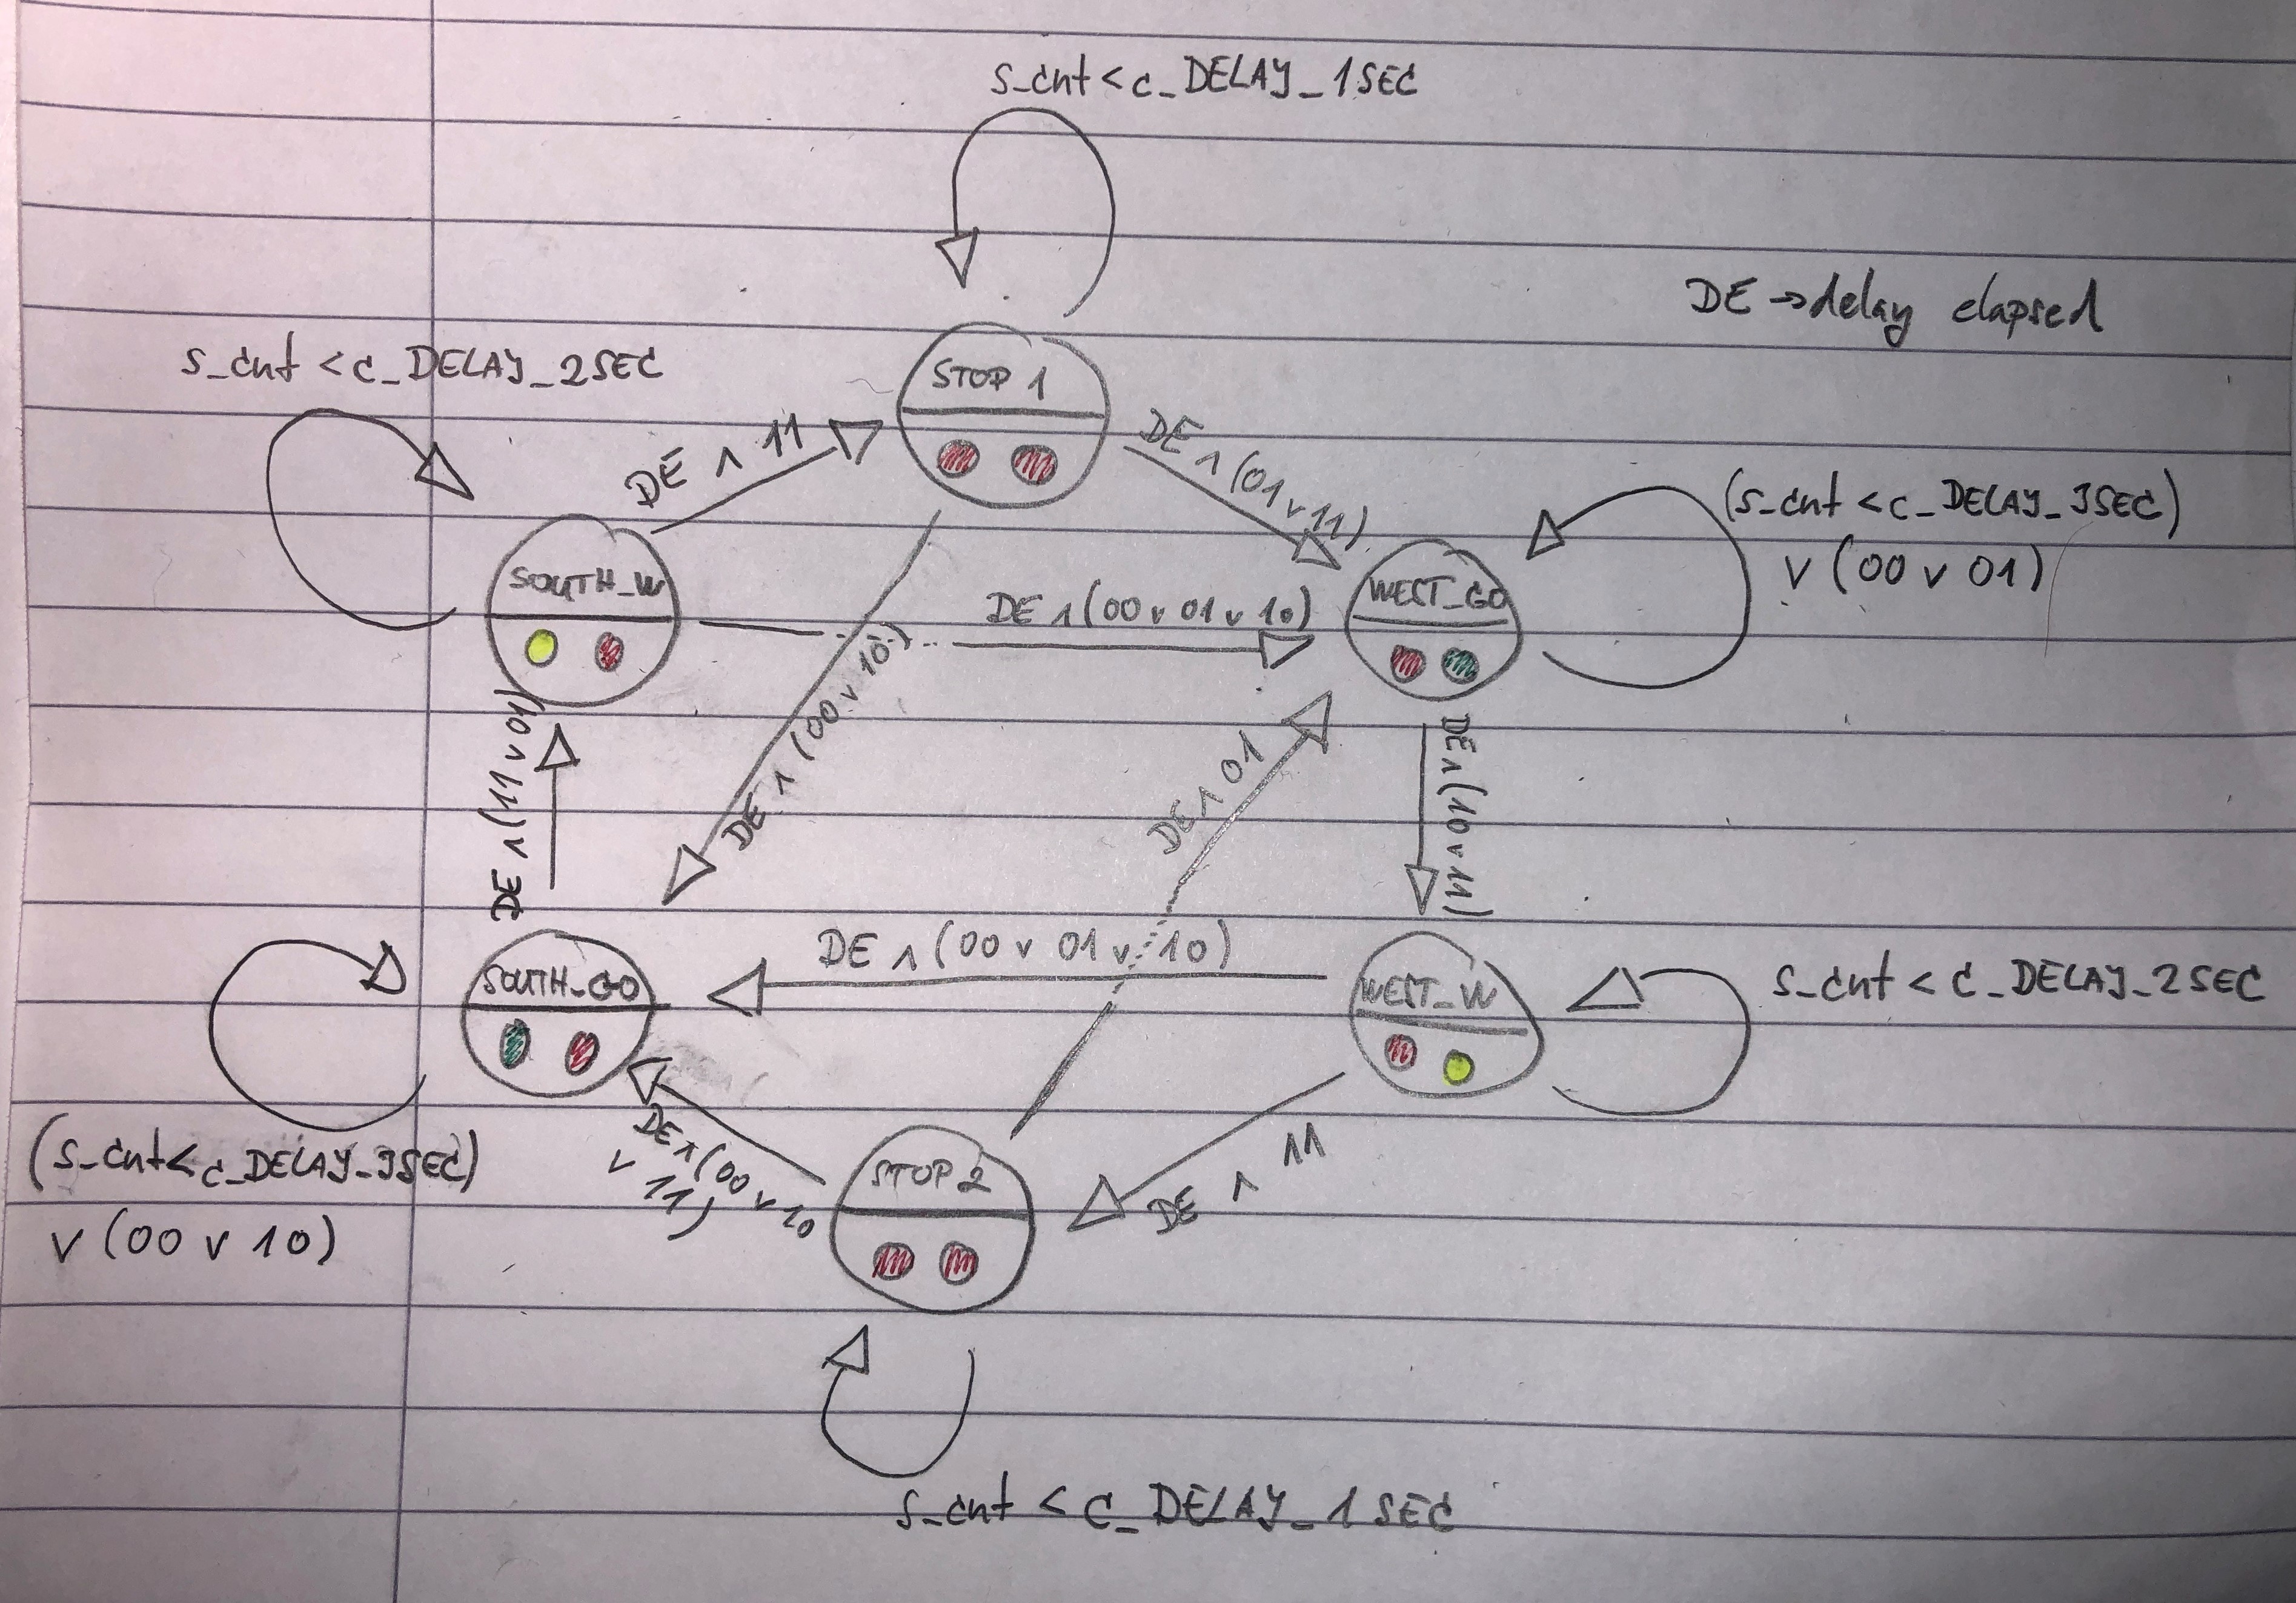 s_cnt < c_DELAY_1SEC
DE → delay elapsed
s_cnt < c_DELAY_2SEC
STOP 1
DE ∧ 11
DE ∧ (01 v 11)
(s_cnt < c_DELAY_3SEC)
v (00 v 01)
SOUTH_W
WEST_GO
DE ∧ (00 v 01 v 10)
DE ∧ (00 v 10)
DE ∧ (11 v 01)
DE ∧ 01
DE ∧ (10 v 11)
DE ∧ (00 v 01 v 10)
SOUTH_GO
WEST_W
s_cnt < c_DELAY_2SEC
(s_cnt < c_DELAY_3SEC)
v (00 v 10)
DE ∧ (00 v 10
v 11)
STOP 2
DE ∧ 11
s_cnt < c_DELAY_1SEC